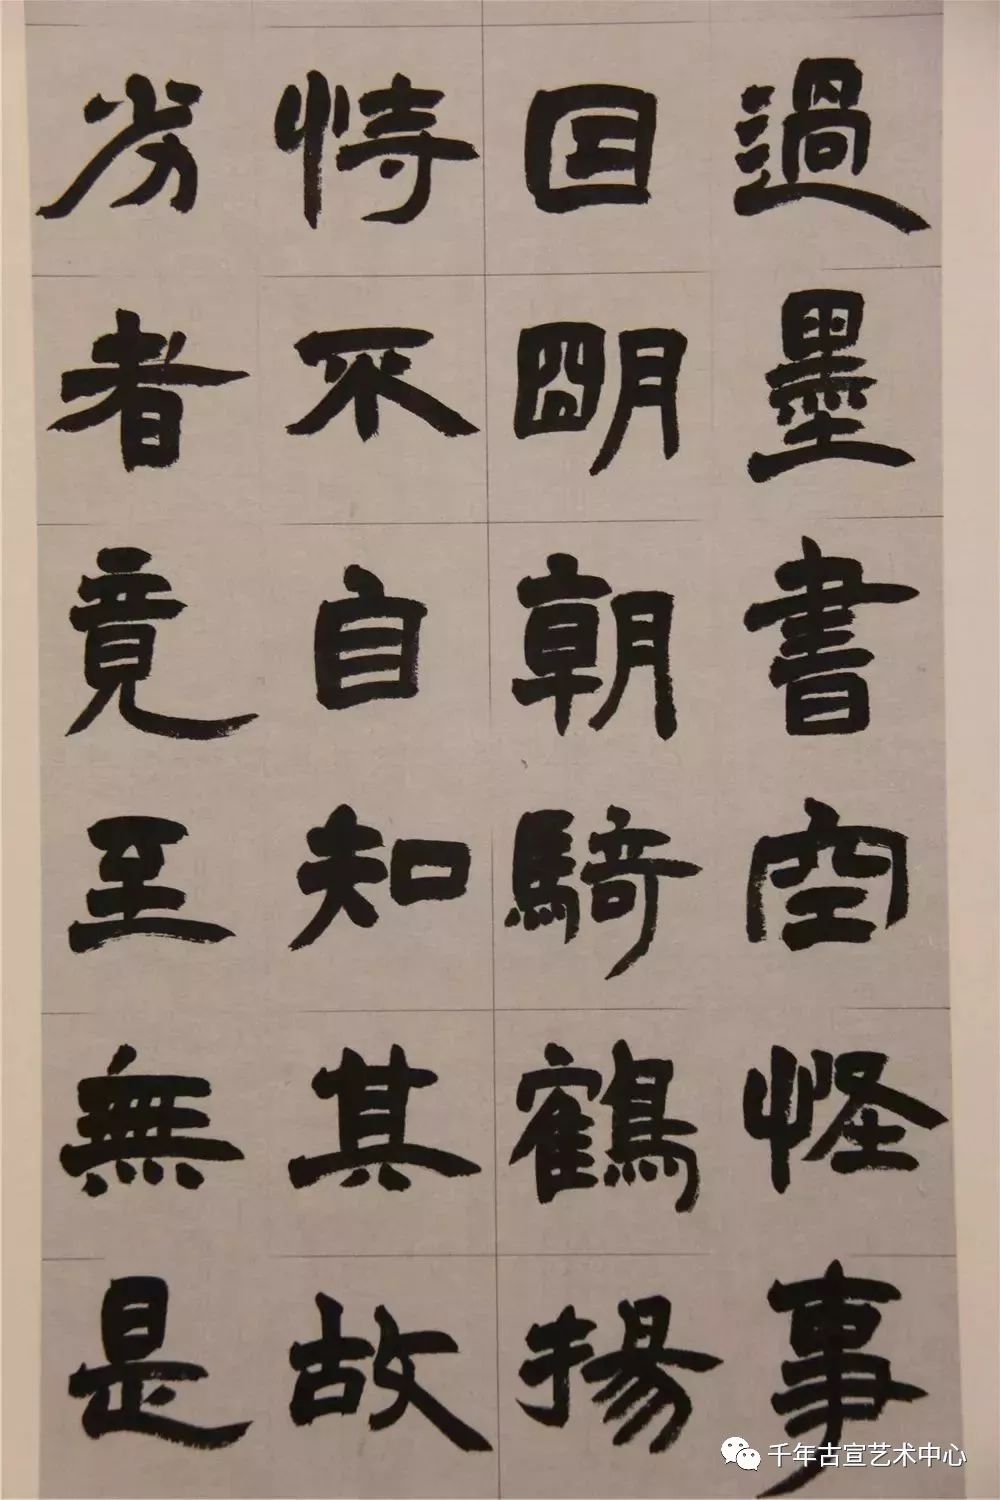 過墨書空怪事
囙朙朝騎鶴揚
恃不自知其故
劣者竟至無是
千年古宣艺术中心